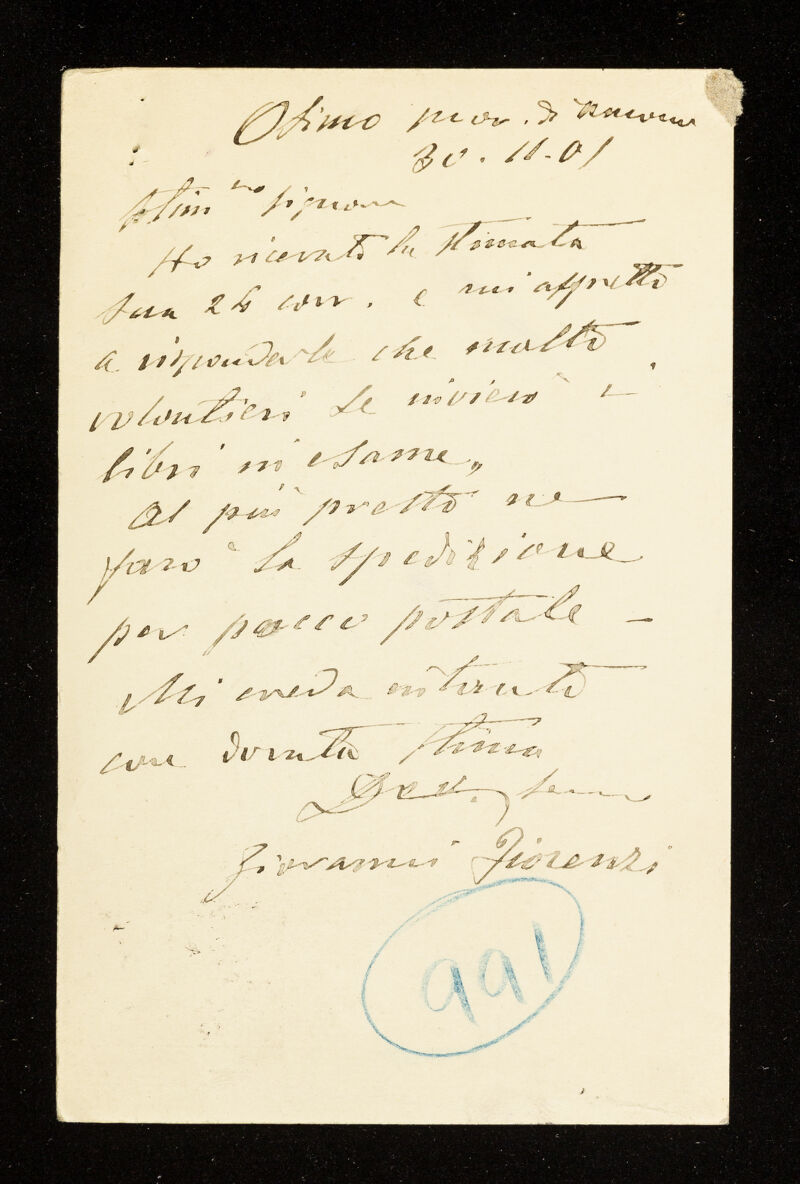 Osimo prov. di Ancona
30. 11. 01
Stim mo Signore
Ho ricevuto la stimata
sua 26 corr. e mi affretto
a risponderle che molto
volontieri Le invierò i
libri in esame,,
Al più presto ne
farò la spedizione
per pacco postale –
Mi creda intanto
con dovuta stima
Dev.
Giovanni Fiorenzi
991